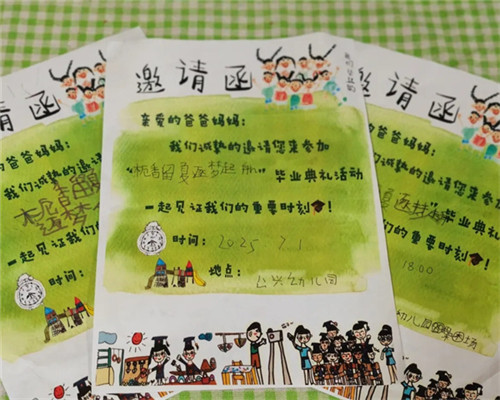 邀请函
亲爱的爸爸妈妈:
我们诚挚的邀请您来参加
"栀香留夏逐梦起航"毕业典礼活动
一起见证我们的重要时刻!
时间: 2025 7.1
地点: 公兴幼儿园
请函
爸爸妈妈:
我们诚挚的邀请
逐梦
一起见证我们的
时间:
邀请函
的爸爸妈妈:
们诚挚的邀请您来参加
毕业典礼活动
起见证我们的重要时刻!
18:00
幼儿园